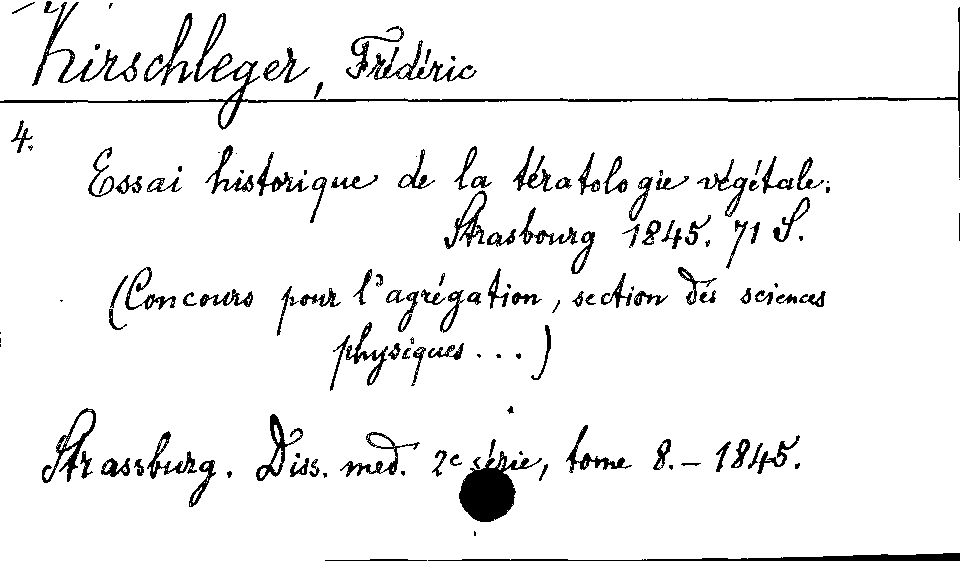 Kirschleger, Frédéric
4.
Essai historique de la tératologie végétale.
Strasbourg 1845. 71 S.
(Concours pour l'agrégation, section des sciences
physiques...)
Strassburg. Diss. med. 2e série, tome 8.- 1845.